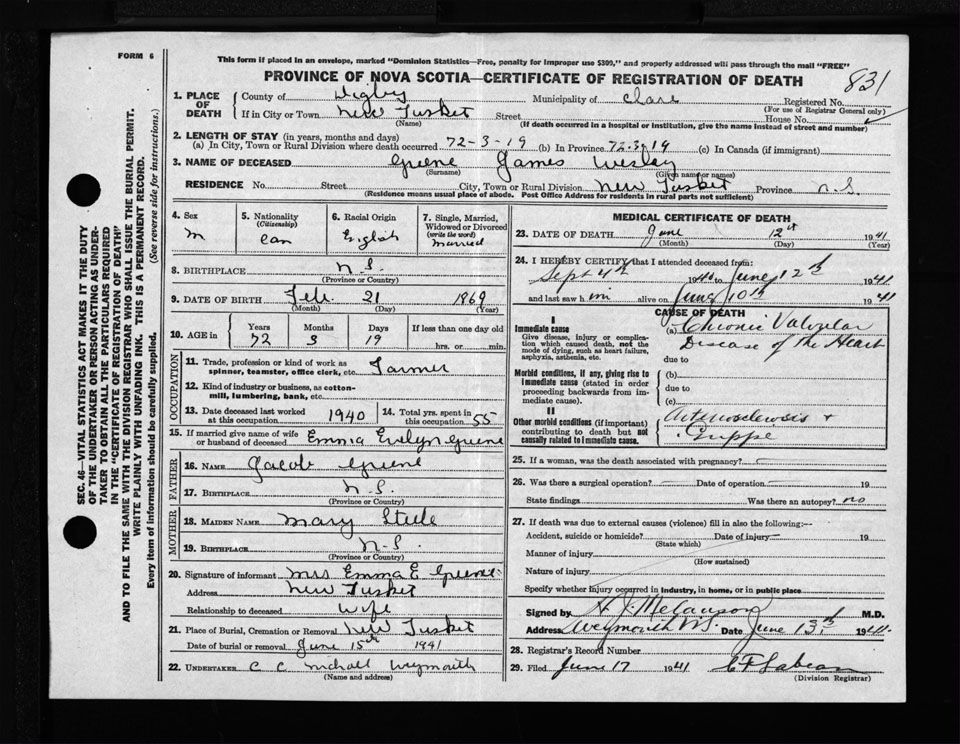 FORM 6
This form if placed in an envelope, marked "Dominion Statistics—Free, penalty for improper use $300," and properly addressed will pass through the mail "FREE"
PROVINCE OF NOVA SCOTIA—CERTIFICATE OF REGISTRATION OF DEATH
831
SEC. 46—VITAL STATISTICS ACT MAKES IT THE DUTY
OF THE UNDERTAKER OR PERSON ACTING AS UNDER-
TAKER TO OBTAIN ALL THE PARTICULARS REQUIRED
IN THE "CERTIFICATE OF REGISTRATION OF DEATH"
AND TO FILE THE SAME WITH THE DIVISION REGISTRAR WHO SHALL ISSUE THE BURIAL PERMIT.
WRITE PLAINLY WITH UNFADING INK. THIS IS A PERMANENT RECORD.
Every item of information should be carefully supplied. (See reverse side for instructions.)
1. PLACE OF DEATH
County of Digby Municipality of Clare Registered No.
(For use of Registrar General only)
If in City or Town New Tusket Street House No.
(Name) (If death occurred in a hospital or institution, give the name instead of street and number)
2. LENGTH OF STAY (in years, months and days)
(a) In City, Town or Rural Division where death occurred 72-3-19 (b) In Province 72-3-19 (c) In Canada (if immigrant)
3. NAME OF DECEASED Greene James Wesley
(Surname) (Given name or names)
RESIDENCE No. Street City, Town or Rural Division New Tusket Province N.S.
(Residence means usual place of abode. Post Office Address for residents in rural parts not sufficient)
4. Sex M
5. Nationality (Citizenship) Can
6. Racial Origin English
7. Single, Married, Widowed or Divorced (write the word) Married
8. BIRTHPLACE N.S.
(Province or Country)
9. DATE OF BIRTH Feb. 21 1869
(Month) (Day) (Year)
10. AGE in Years 72 Months 3 Days 19 If less than one day old hrs. or min.
OCCUPATION
11. Trade, profession or kind of work as spinner, teamster, office clerk, etc. Farmer
12. Kind of industry or business, as cotton-mill, lumbering, bank, etc.
13. Date deceased last worked at this occupation 1940
14. Total yrs. spent in this occupation 55
15. If married give name of wife or husband of deceased Emma Evelyn Greene
FATHER
16. NAME Jacob Greene
17. BIRTHPLACE N.S.
(Province or Country)
MOTHER
18. MAIDEN NAME Mary Steele
19. BIRTHPLACE N.S.
(Province or Country)
20. Signature of informant Mrs Emma E Greene
Address New Tusket
Relationship to deceased Wife
21. Place of Burial, Cremation or Removal New Tusket
Date of burial or removal June 15th 1941
22. UNDERTAKER C C Michall Weymouth
(Name and address)
MEDICAL CERTIFICATE OF DEATH
23. DATE OF DEATH June 12th 1941
(Month) (Day) (Year)
24. I HEREBY CERTIFY that I attended deceased from:
Sept 4th 1940 to June 12th 1941
and last saw him alive on June 10th 1941
CAUSE OF DEATH
I
Immediate cause
Give disease, injury or complication which caused death, not the mode of dying, such as heart failure, asphyxia, asthenia, etc.
(a) Chronic Valvular
Disease of the Heart
due to
Morbid conditions, if any, giving rise to immediate cause (stated in order proceeding backwards from immediate cause).
(b)
due to
(c)
II
Other morbid conditions (if important) contributing to death but not causally related to immediate cause.
Arteriosclerosis +
Grippe
25. If a woman, was the death associated with pregnancy?
26. Was there a surgical operation? Date of operation 19
State findings Was there an autopsy? no
27. If death was due to external causes (violence) fill in also the following:—
Accident, suicide or homicide? Date of injury 19
(State which)
Manner of injury
(How sustained)
Nature of injury
Specify whether injury occurred in industry, in home, or in public place
Signed by H J Melanson M.D.
Address Weymouth N.S. Date June 13th 1941.
28. Registrar's Record Number
29. Filed June 17 1941
(Division Registrar)